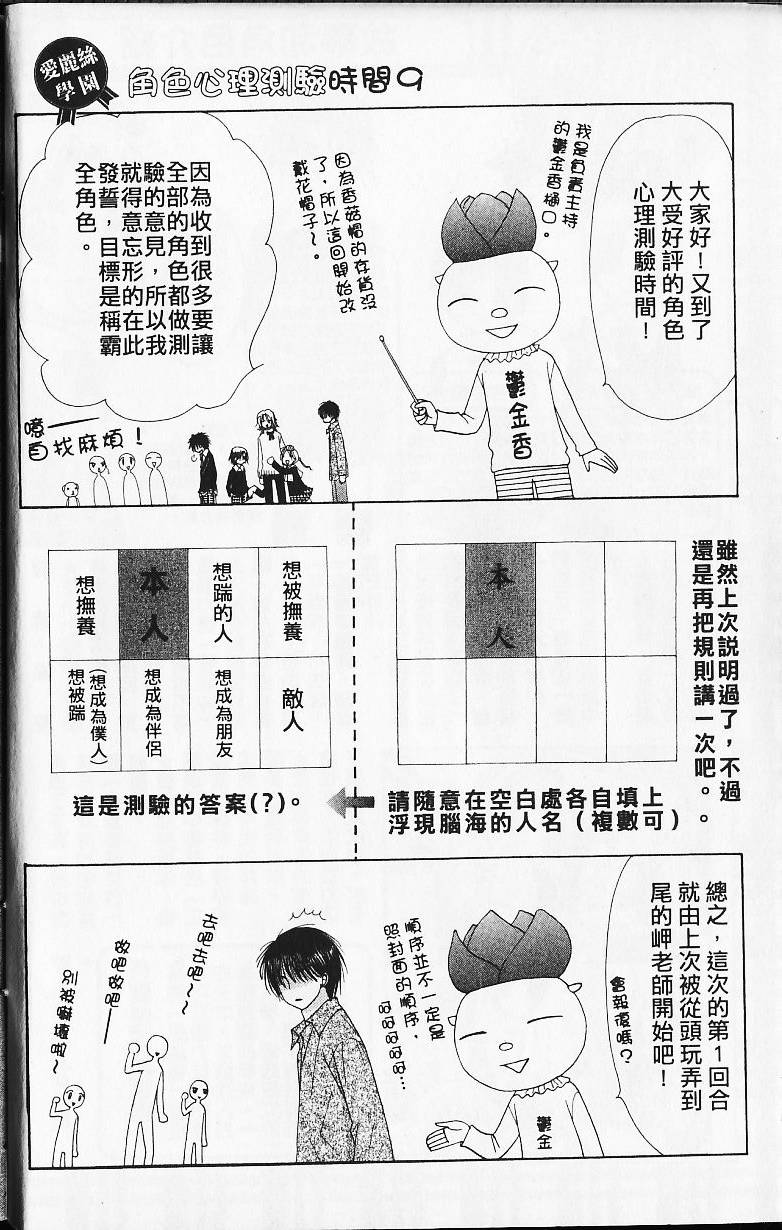 愛麗絲
學園
角色心理測驗時間9
大家好！又到了
大受好評的角色
心理測驗時間！
我是負責主持
的鬱金香樋口。
因為香菇帽的存貨沒
了，所以這回開始改
戴花帽子～。
鬱金香
因為收到很多要讓
全部的角色都做測
驗的意見，所以我
就得意忘形的在此
發誓，目標是稱霸
全角色。
噫——
自找麻煩！
雖然上次説明過了，不過
還是再把規則講一次吧。
本人
請隨意在空白處各自填上
浮現腦海的人名（複數可）。
想被撫養
想踹的人
本人
想撫養
敵人
想成為朋友
想成為伴侶
（想成為僕人）
想被踹
這是測驗的答案(?)。
總之，這次的第1回合
就由上次被從頭玩弄到
尾的岬老師開始吧！
會報復嗎？
順序並不一定是
照封面的順序，
呵呵呵呵呵…
鬱金
去吧去吧～～
做吧做吧——
別被嚇壞啦～